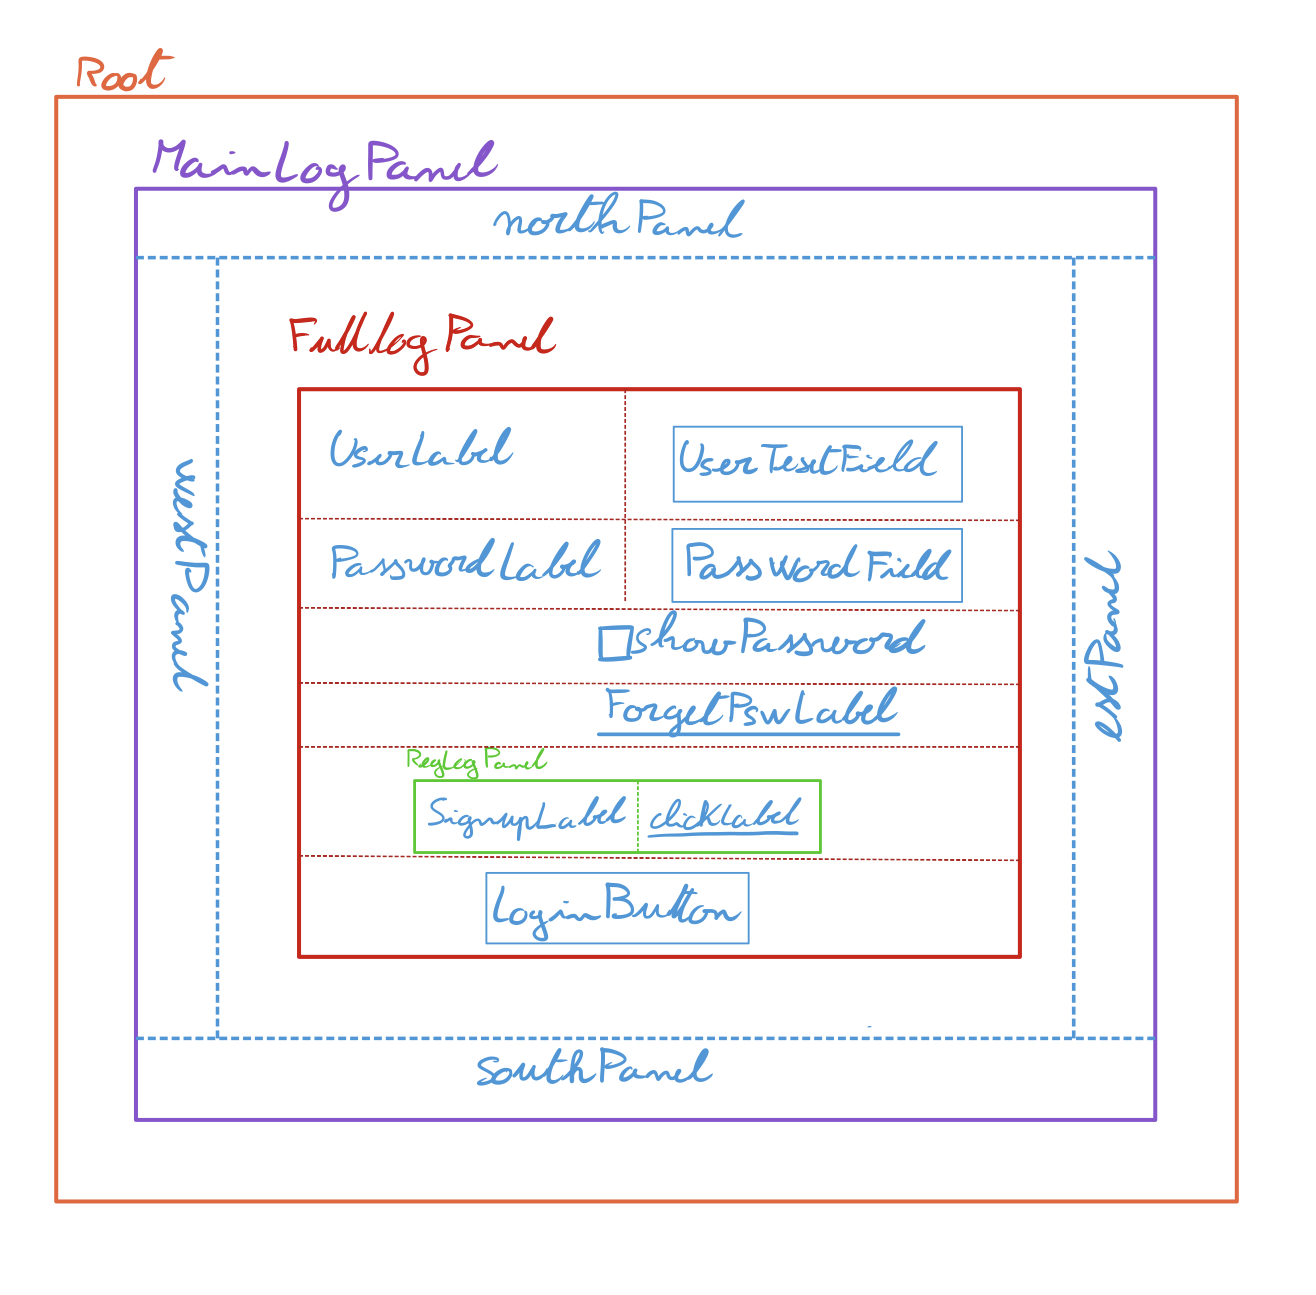 Root
MainLogPanel
northPanel
FulllogPanel
UserLabel
UserTextField
westPanel
PasswordLabel
PassWordField
estPanel
showPassword
ForgetPswLabel
RegLogPanel
SignupLabel
clickLabel
LoginButton
southPanel